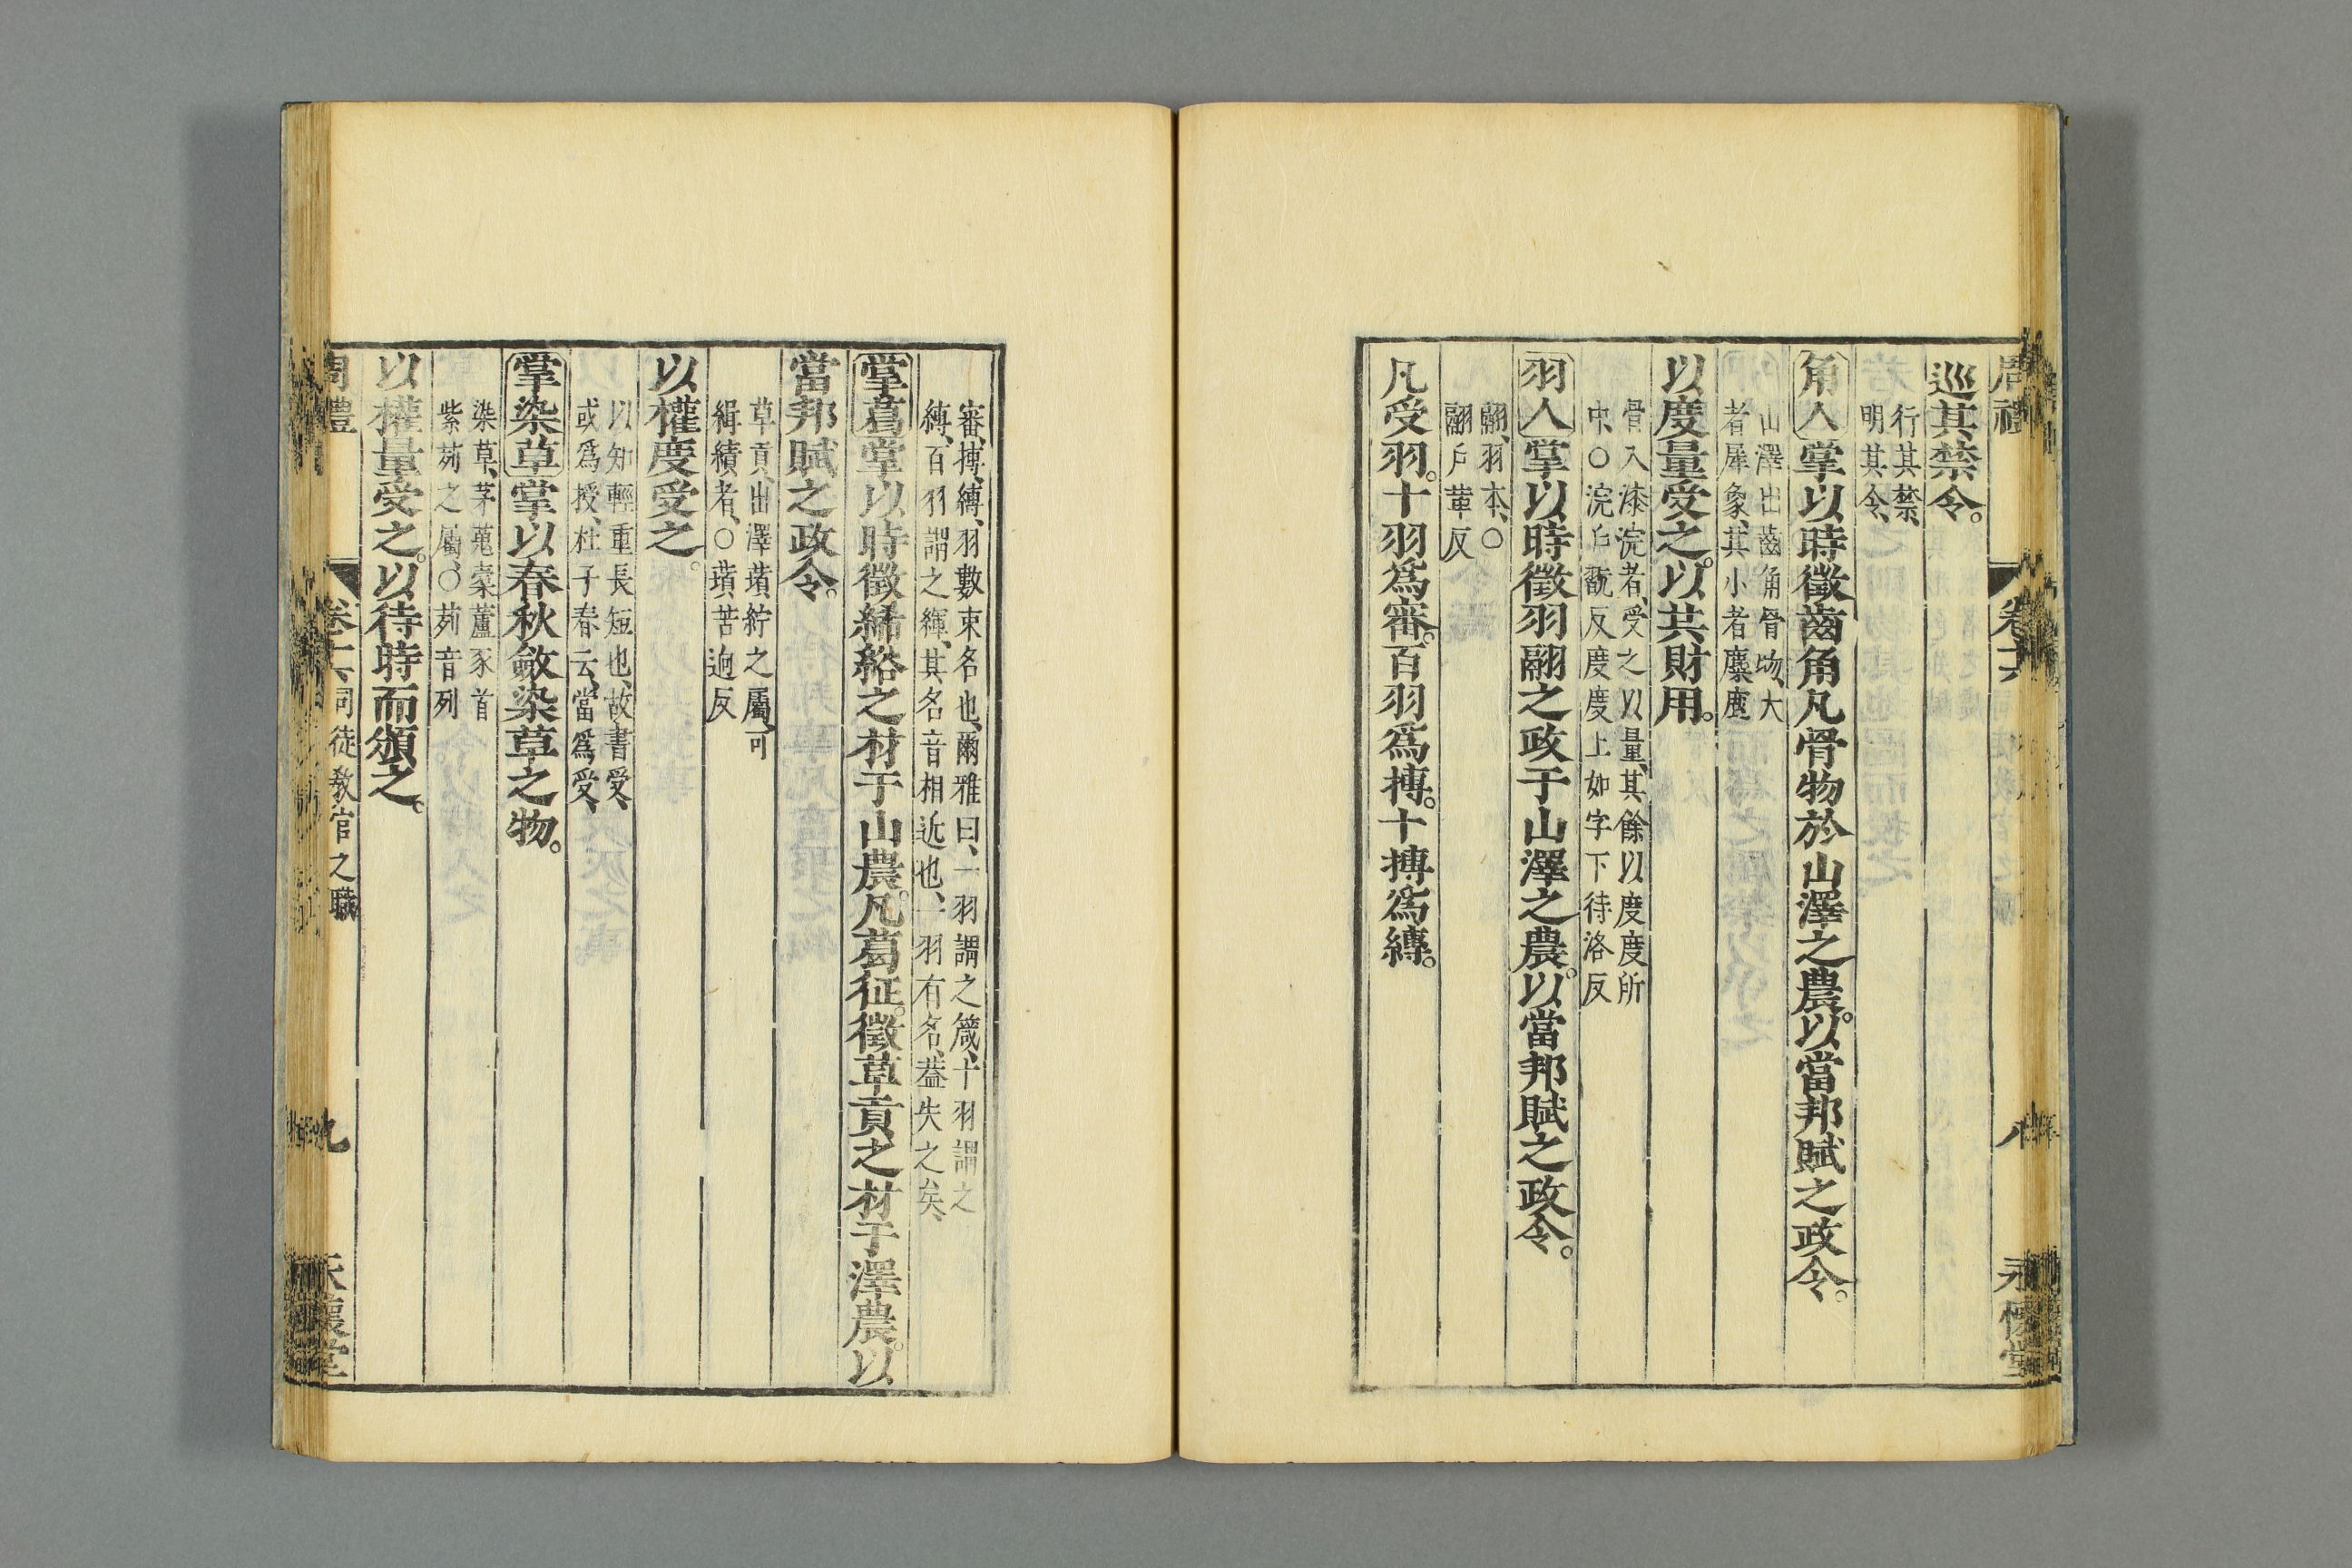 周禮
卷六
八
永懷堂
巡其禁令。
行其禁、
明其令、
角人掌以時徵齒角凡骨物於山澤之農。以當邦賦之政令。
山澤出齒角骨物、大
者犀象、其小者麋鹿
以度量受之。以共財用。
骨入漆浣者、受之以量、其餘以度度所
中、○浣戶翫反度度上如字下待洛反
羽人掌以時徵羽翮之政于山澤之農。以當邦賦之政令。
翮、羽本、○
翮戶革反
凡受羽。十羽爲審。百羽爲摶。十摶爲縛。
審、摶、縛、羽數束名也、爾雅曰、一羽謂之箴、十羽謂之
縛、百羽謂之緷、其名音相近也、一羽有名、葢失之矣、
掌葛掌以時徵絺綌之材于山農。凡葛征。徵草貢之材于澤農。以
當邦賦之政令。
草貢、出澤、蘋紵之屬、可
緝績者、○蘋苦迥反
以權度受之。
以知輕重長短也、故書受、
或爲授、杜子春云、當爲受、
掌染草掌以春秋斂染草之物。
染草、茅蒐橐蘆豕首
紫茢之屬、○茢音列
以權量受之。以待時而頒之。
周禮
卷六
司徒教官之職
九
永懷堂